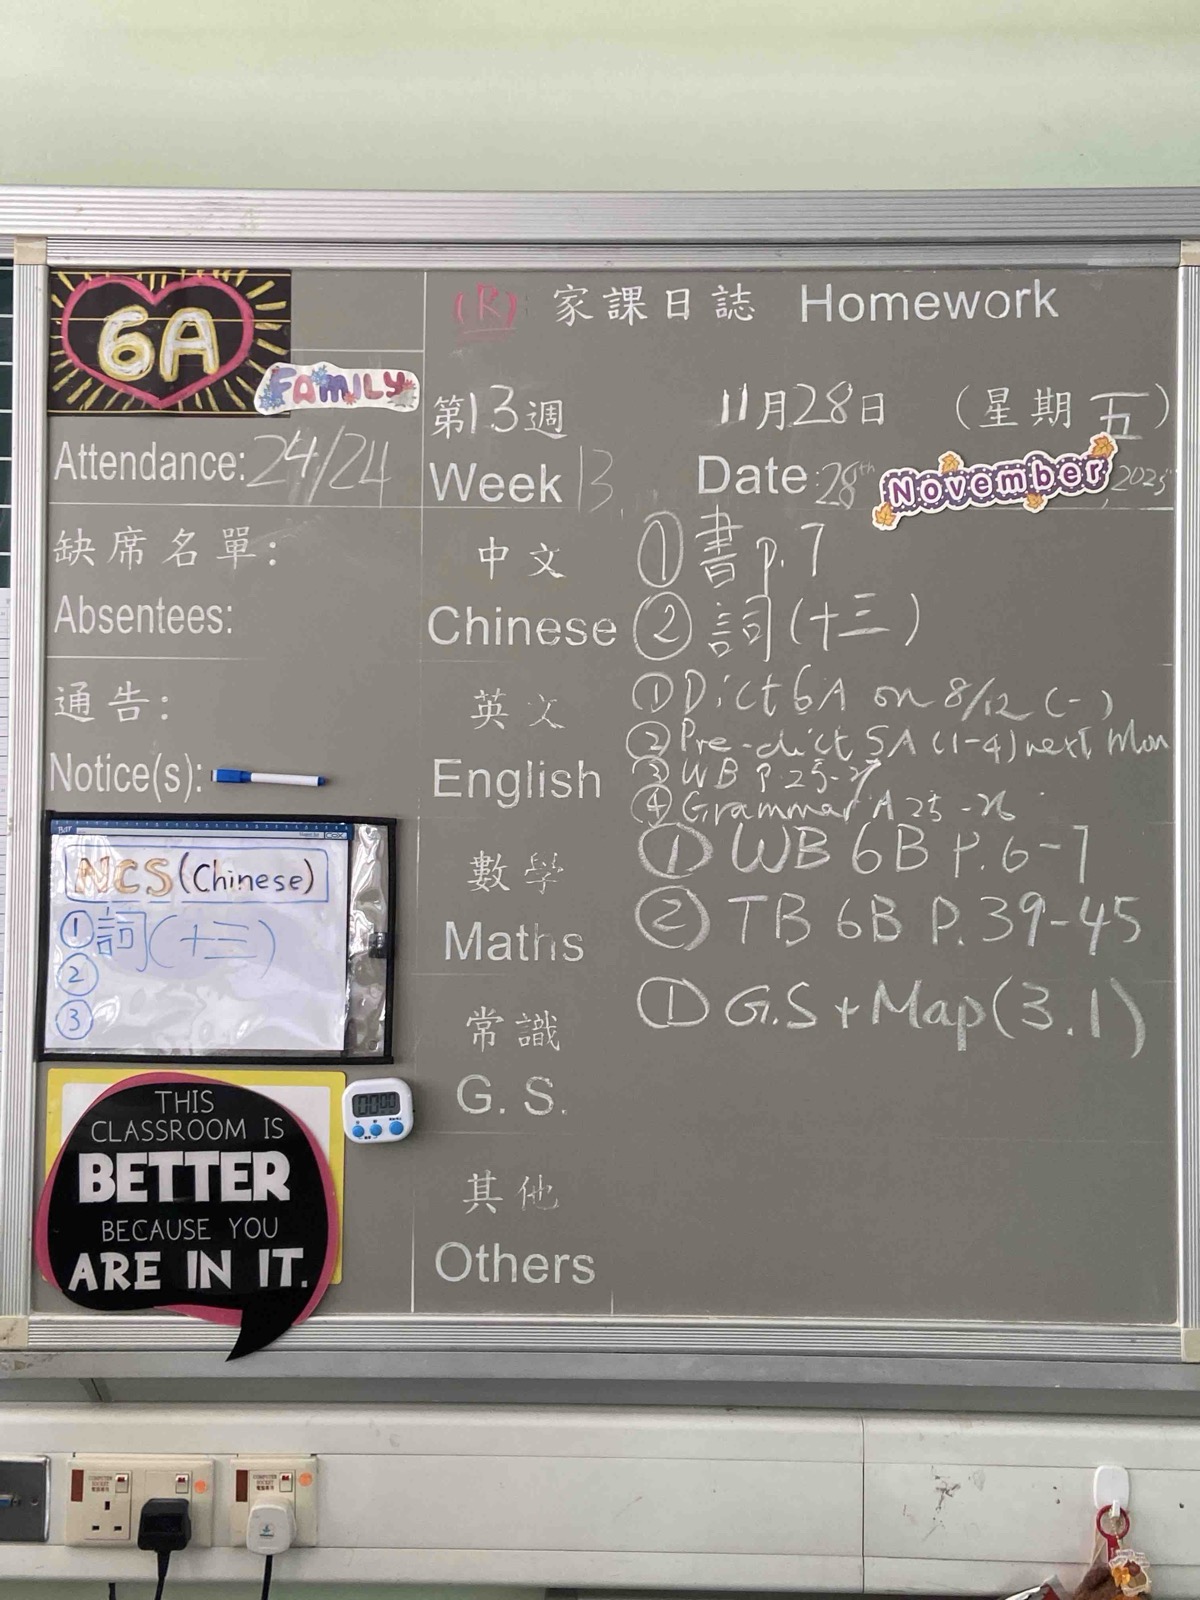 6A
FAMILY
(R) 家課日誌 Homework
第13週 11月28日 (星期五)
Week 13. Date: 28th November, 2025
Attendance: 24/24
缺席名單:
Absentees:
通告:
Notice(s):
NCS (Chinese)
① 詞(十三)
②
③
THIS
CLASSROOM IS
BETTER
BECAUSE YOU
ARE IN IT.
中文
Chinese
① 書 p.7
② 詞(十三)
英文
English
① Dict 6A on 8/12 (一)
② Pre-dict 5A (1-4) next Mon
③ WB P.25-27
④ Grammar A 25-26
數學
Maths
① WB 6B P.6-7
② TB 6B P.39-45
常識
G. S.
① G.S + Map (3.1)
其他
Others
COMPUTER
SOCKET
COMPUTER
SOCKET